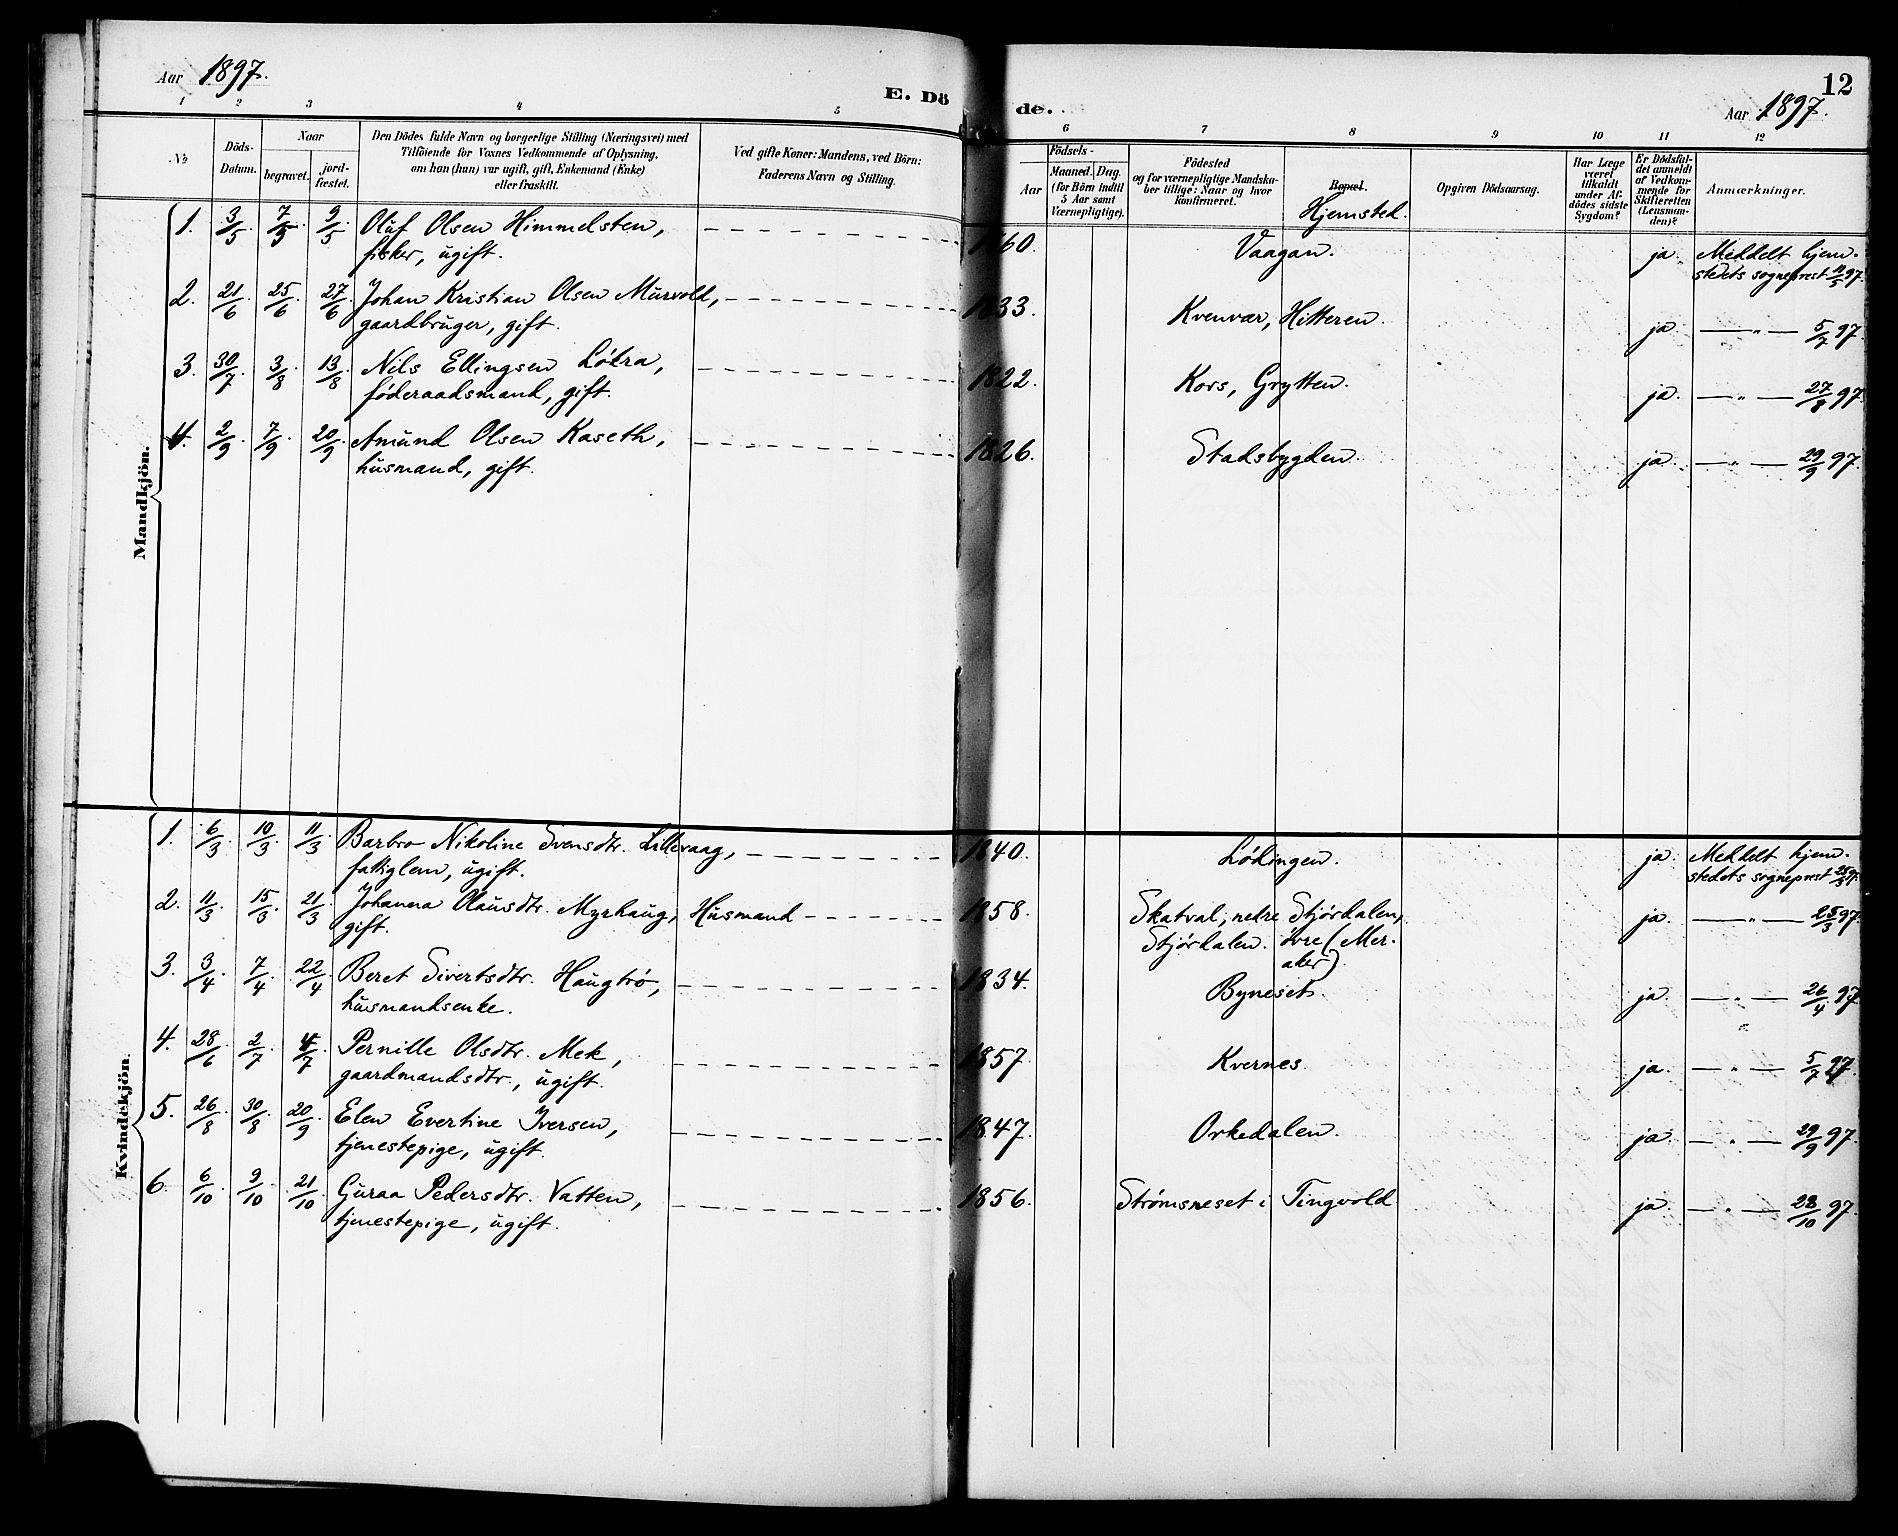 Aar 1897.
E. Dö
de.
Aar 1897.
12
1 2 3 4 5 6 7 8 9 10 11 12
№
Döds-
Datum.
Naar
begravet.
jord-
fæstet.
Den Dödes fulde Navn og borgerlige Stilling (Næringsvei) med
Tilföiende for Voxnes Vedkommende af Oplysning,
om han (hun) var ugift, gift, Enkemand (Enke)
eller fraskilt.
Ved gifte Koner: Mandens, ved Börn:
Faderens Navn og Stilling.
Födsels-
Aar
Maaned. Dag.
(for Börn indtil
5 Aar samt
Værnepligtige).
Födested
og for værnepligtige Mandska-
ber tillige: Naar og hvor
konfirmeret.
Bopæl.
Hjemsted.
Opgiven Dödsaarsag.
Har Læge
været
tilkaldt
under Af-
dödes sidste
Sygdom?
Er Dödsfal-
det anmeldt
af Vedkom-
mende for
Skifteretten
(Lensman-
den)?
Anmærkninger.
Mandkjön.
1. 3/5. 7/5. 9/5. Oluf Olsen Himmelsten, 1860. Vaagan. ja. Meddelt hjem-
fisker, ugift. stedets sogneprest 11/5 97.
2. 21/6. 25/6. 27/6. Johan Kristian Olsen Murvold, 1833. Kvenvær, Hitteren. ja. — " — 5/7 97.
gaardbruger, gift.
3. 30/7. 3/8. 13/8. Nils Ellingsen Løkra, 1822. Kors, Grytten. ja. — " — 27/8 97.
føderaadsmand, gift.
4. 2/9. 7/9. 20/9. Amund Olsen Kaseth, 1826. Stadsbygden. ja. — " — 29/9 97.
husmand, gift.
Kvindekjön.
1. 6/3. 10/3. 11/3 Barbro Nikoline Svensdtr. Lillevaag, 1840. Lødingen. ja. Meddelt hjem-
fattiglem, ugift. stedets sogneprest 25/3 97.
2. 11/3. 15/3. 21/3 Johanna Olausdtr. Myrhaug, Husmand 1858. Skatval, nedre Stjørdalen, ja. — " — 25/3 97.
gift. Stjørdalen. øvre (Mer-
aker)
3. 3/4. 7/4. 22/4 Beret Sivertsdtr. Haugtrø, 1834. Byneset. ja. — " — 26/4 97.
husmandsenke.
4. 28/6. 2/7. 4/7 Pernille Olsdtr. Mek, 1857. Kvernes. ja. — " — 5/7 97.
gaardmandsdtr., ugift.
5. 26/8. 30/8. 20/9 Elen Evertine Iversen, 1847. Orkedalen. ja. — " — 29/9 97.
tjenestepige, ugift.
6. 6/10. 9/10. 21/10 Guraa Pedersdtr. Vatten, 1856. Strømsneset i Tingvold ja. — " — 28/10 97.
tjenestepige, ugift.